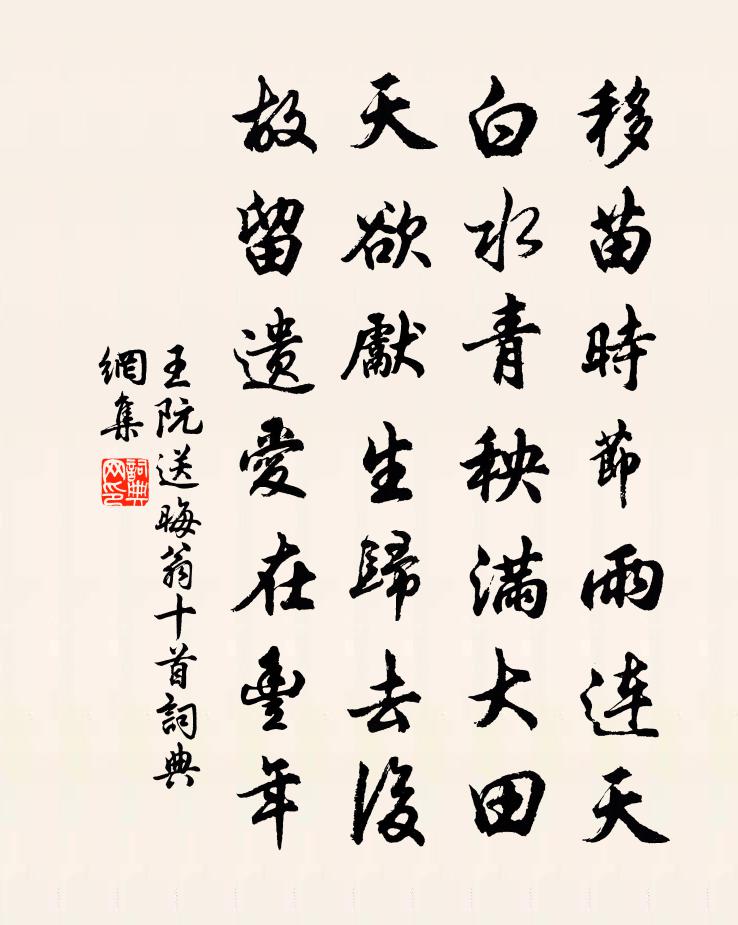 移苗時節雨連天
白水青秧滿大田
天欲獻生歸去後
故留遺愛在豐年
王阮送晦翁十首詞典
網集
詞典
网印